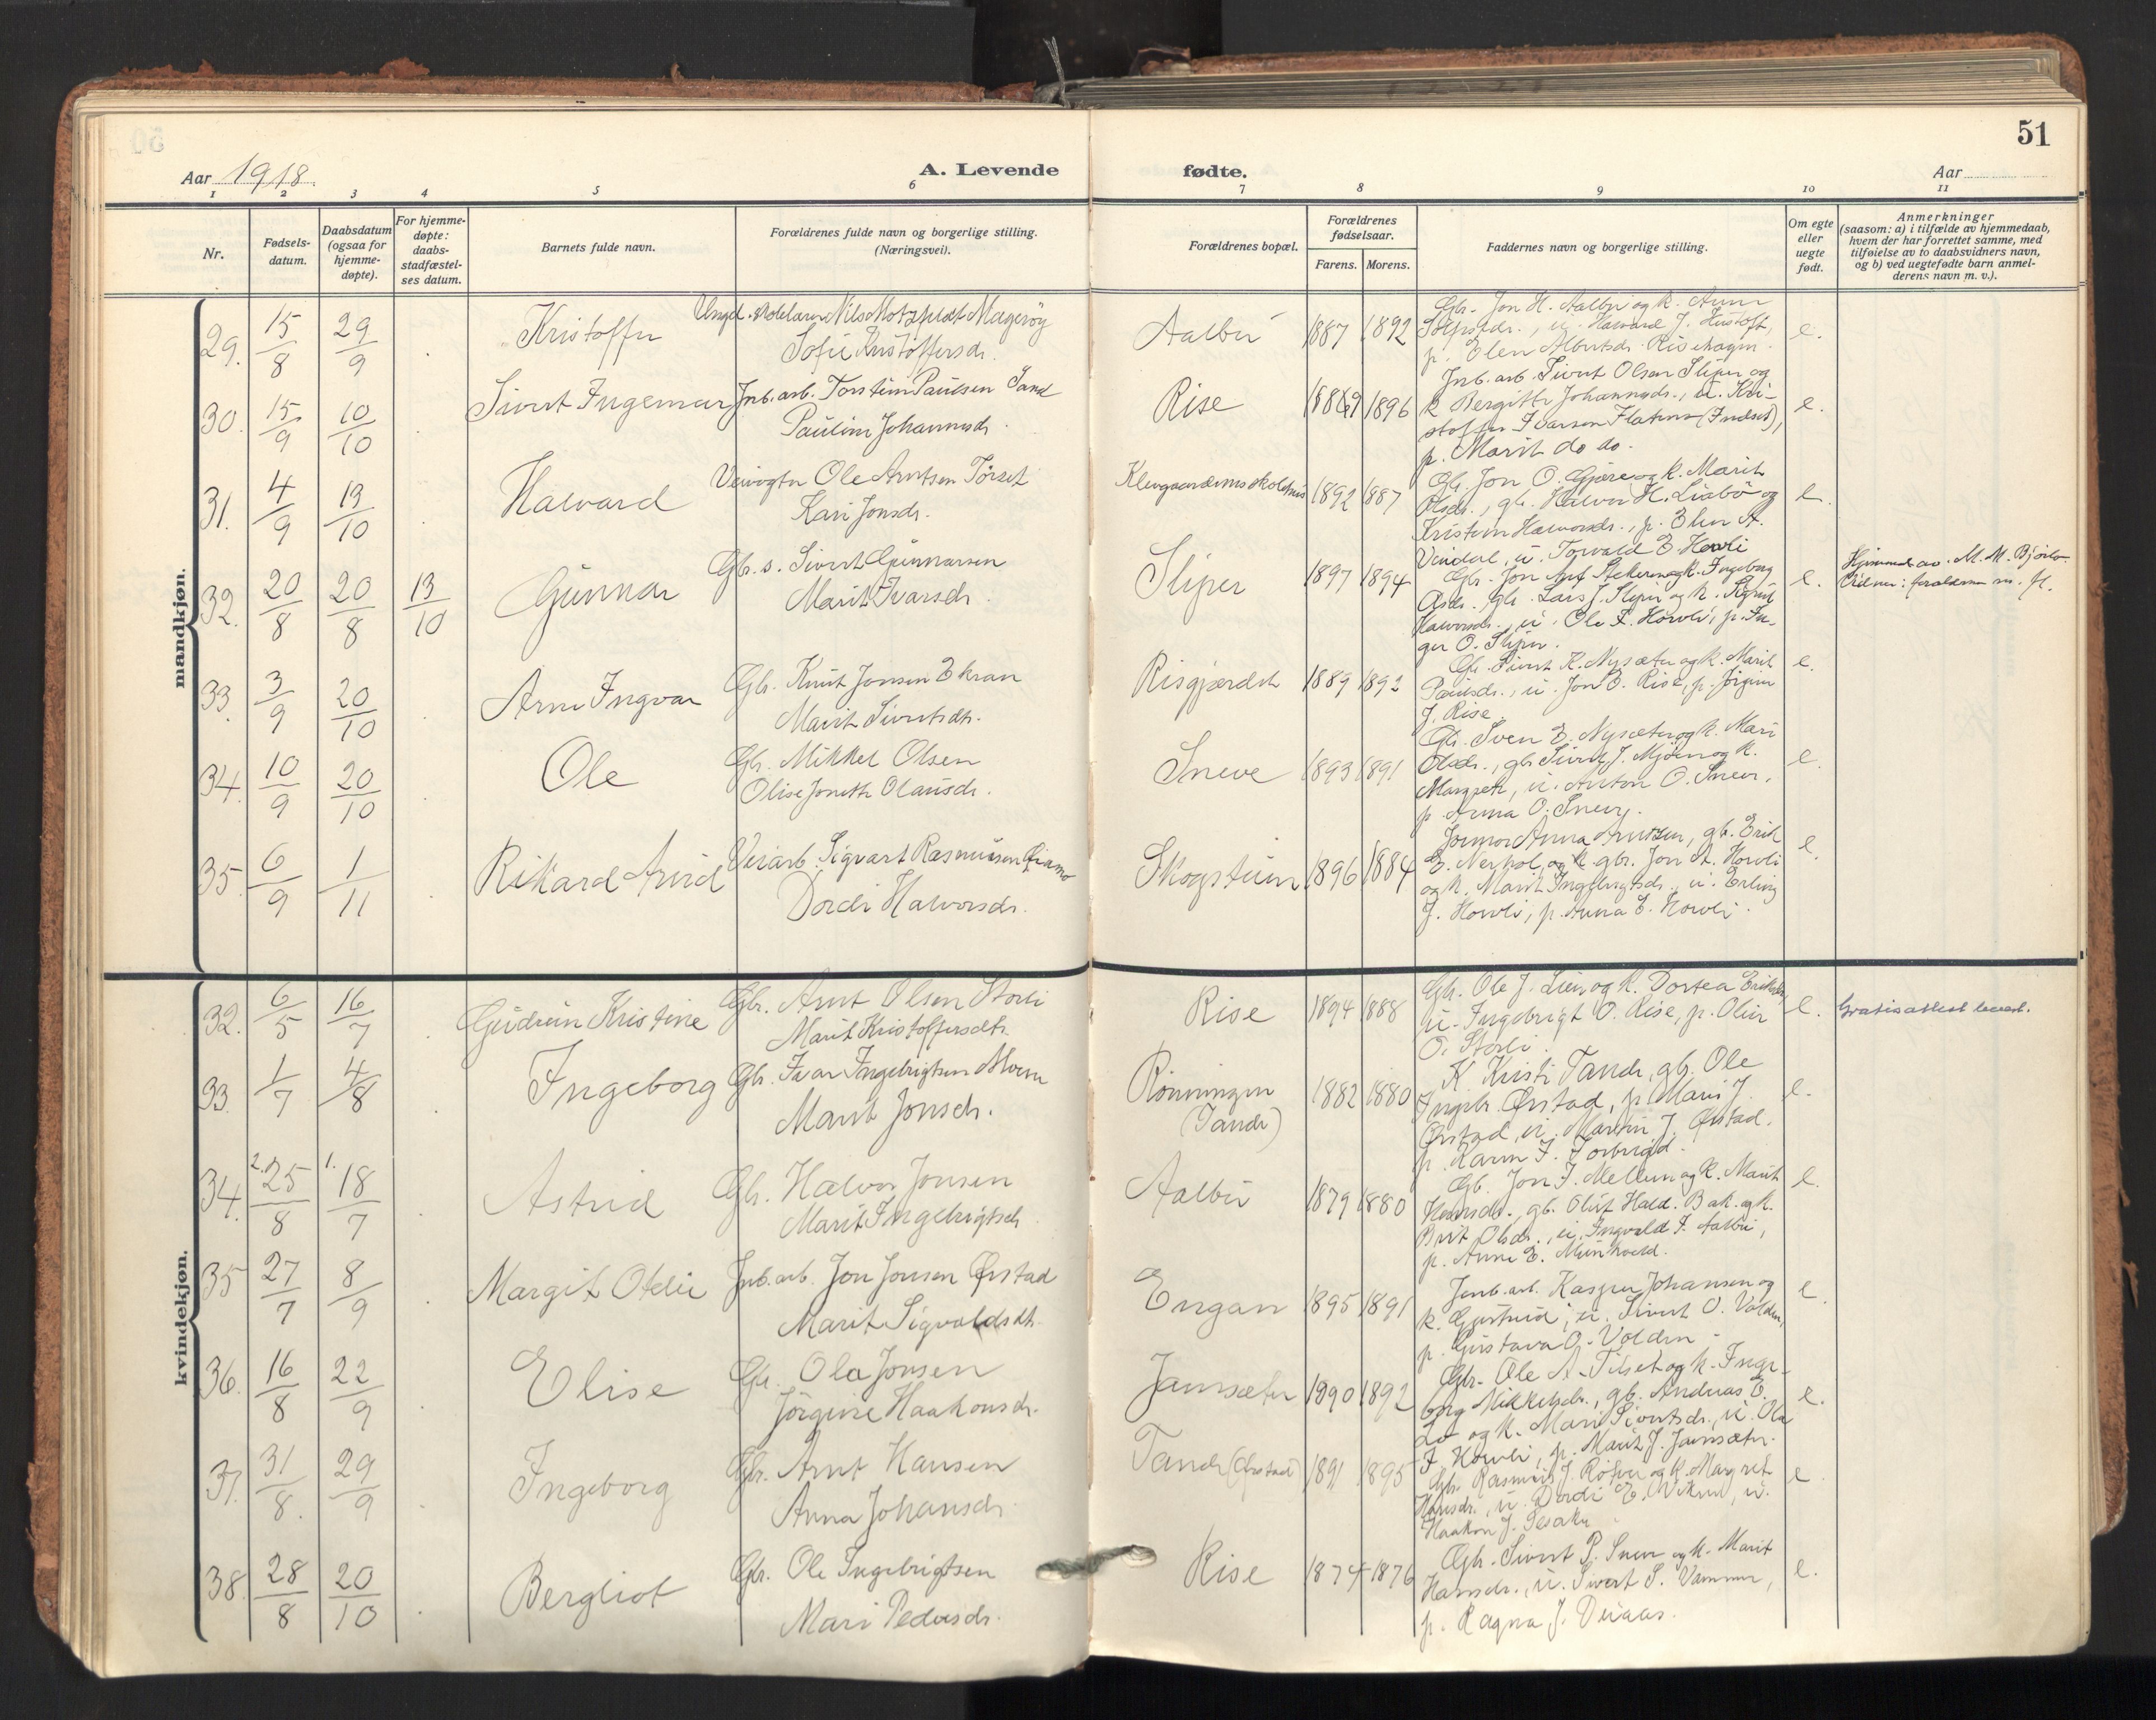 51
Aar 1918.
A. Levende fødte.
Aar
1 2 3 4 5 6 7 8 9 10 11
Nr.
Fødsels-
datum.
Daabsdatum
(ogsaa for
hjemme-
døpte).
For hjemme-
døpte:
daabs-
stadfæstel-
ses datum.
Barnets fulde navn.
Forældrenes fulde navn og borgerlige stilling.
(Næringsvei).
Forældrenes bopæl.
Forældrenes
fødselsaar.
Farens. Morens.
Faddernes navn og borgerlige stilling.
Om egte
eller
uegte
født.
Anmerkninger
(saasom: a) i tilfælde av hjemmedaab,
hvem der har forrettet samme, med
tilføielse av to daabsvidners navn,
og b) ved uegtefødte barn anmel-
derens navn m. v.).
mandkjøn.
29. 15/8 29/9 Kristoffer
Nils Motzfeldt Magerøy
Sofie Kristoffersdr.
Aalbu 1887 1892
Gbr. Jon H. Aalbu og k. Anne
Halvard J.
p. Elen Albertsdr. Risehagen.
e.
30. 15/9 10/10 Sivert Ingemar
Inb. arb. Torstein Paulsen Sand
Pauline Johannesdr.
Rise 1889 1896
Inb. arb. Sivert Olsen Sliper og
k. Bergitte Johannesdr., u. Kri-
stoffer Ivarsen Flatmo (Indset),
p. Marit do do.
e.
31. 4/9 13/10 Halvard
Veivogter Ole Arntsen Tørset
Kari Jonsdr.
Klevgaardenes skolehus 1892 1887
Gb. Jon O. Gjøre og k. Marit
Olsdr., gb. Halvor H. Liabö og
Kristine Halvorsdr., p. Elen A.
Vindal, u. Torvald E. Hovli
e.
32. 20/8 20/8 13/10 Gunnar
Gb. s. Sivert Gunnarsen
Marit Ivarsdr.
Sliper 1897 1894
Gb. Jon Arnt og k. Ingeborg
gb. Lars J. Sliper og k.
Halvorsdr., u. Ole E. Hovli, p. In-
ger O. Sliper.
e.
Hjemmed. av. M. M.
Vidner: forældrene m. fl.
33. 3/9 20/10 Arne Ingvar
Gb. Knut Jonsen Ekran
Marit Sivertsdtr.
Risgjærdet 1889 1892
Gb. Sivert K. Nysæter og k. Marit
Paulsdr., u. Jon E. Rise, p. Jörgine
J. Rise.
e.
34. 10/9 20/10 Ole
Gb. Mikkel Olsen
Olise Jonette Olausdr.
Sneve 1893 1891
Gb. Sven E. Nysæter og k. Mari
Olsdr., gb. Sivert J. Mjøen og k.
Margrete, u. Anton O. Sneve,
p. Anna O. Sneve.
e.
35. 6/9 1/11 Rikard Arvid
Veiarb. Sigvart Rasmussen
Dordi Halvorsdr.
Skogsteien 1896 1884
Jormor Anna Arntzen, gb. Erik
E. Nerhol og k. gbr. Jon A. Hovli
og k. Marit Ingebrigtsdr., u. Erling
J. Hovli, p. Anna E. Hovli.
e.
kvindekjøn.
32. 6/5 16/7 Gudrun Kristine
Gbr. Arnt Olsen Storli
Marit Kristoffersdtr.
Rise 1894 1888
Gb. Ole J. Lien og k. Dortea Eriksdr.
u. Ingebrigt O. Rise, p. Oline
O. Storli.
e.
Gratisattest levert.
33. 1/7 4/8 Ingeborg
Gb. Ivar Ingebrigtsen Moen
Marit Jonsdr.
Rönningen
(Jande) 1882 1880
K. Kristi Tande, gb. Ole
Ingebr. Ørstad, p. Mari J.
Ørstad, u. Martin J. Ørstad.
p. Karen I.
e.
34. 2. 25/8 1. 18/7 Astrid
Gb. Halvor Jonsen
Marit Ingebrigtsdr.
Aalbu 1879 1880
Gb. Jon J. Mellem og k. Marit
Hansdr., gb. Oluf Hald. Bak og k.
Brit Olsdr., u. Ingvald I. Aalbu,
p. Anne E. Munkvold.
e.
35 27/7 8/9 Margit Otelie
Inb. arb. Jon Jonsen Ørstad
Marit Sigvaldsdt.
Engan 1895 1891
Jernb. arb. Kasper Johansen og
k. Gjertrud, u. Sivert O. Volden,
p. Gustava O. Volden.
e.
36. 16/8 22/9 Elise
Gb. Ola Jonsen
Jörgine Haakonsdr.
Jamsæter 1890 1892
Gbr. Ole A. Tilset og k. Inge-
borg Mikkelsdr., gb. Andreas E.
Lo og k. Mari Sivertsdr., u. Ola
I. Hovli, p. Marit J. Jamsæter.
e.
37. 31/8. 29/9 Ingeborg
Gb. Arnt Hansen
Anna Johansdr.
Tande (Ørstad) 1891 1895
Gb. Rasmus J. og k. Margret
Hansdr., u. Dordi E. u.
Haakon J.
e.
38. 28/8 20/10 Bergliot
Gb. Ole Ingebrigtsen
Mari Pedersdr.
Rise 1874 1876
Gb. Sivert P. Sneve og k. Marit
Hansdr., u. Sivert S.
p. Ragna J. Duaas.
e.